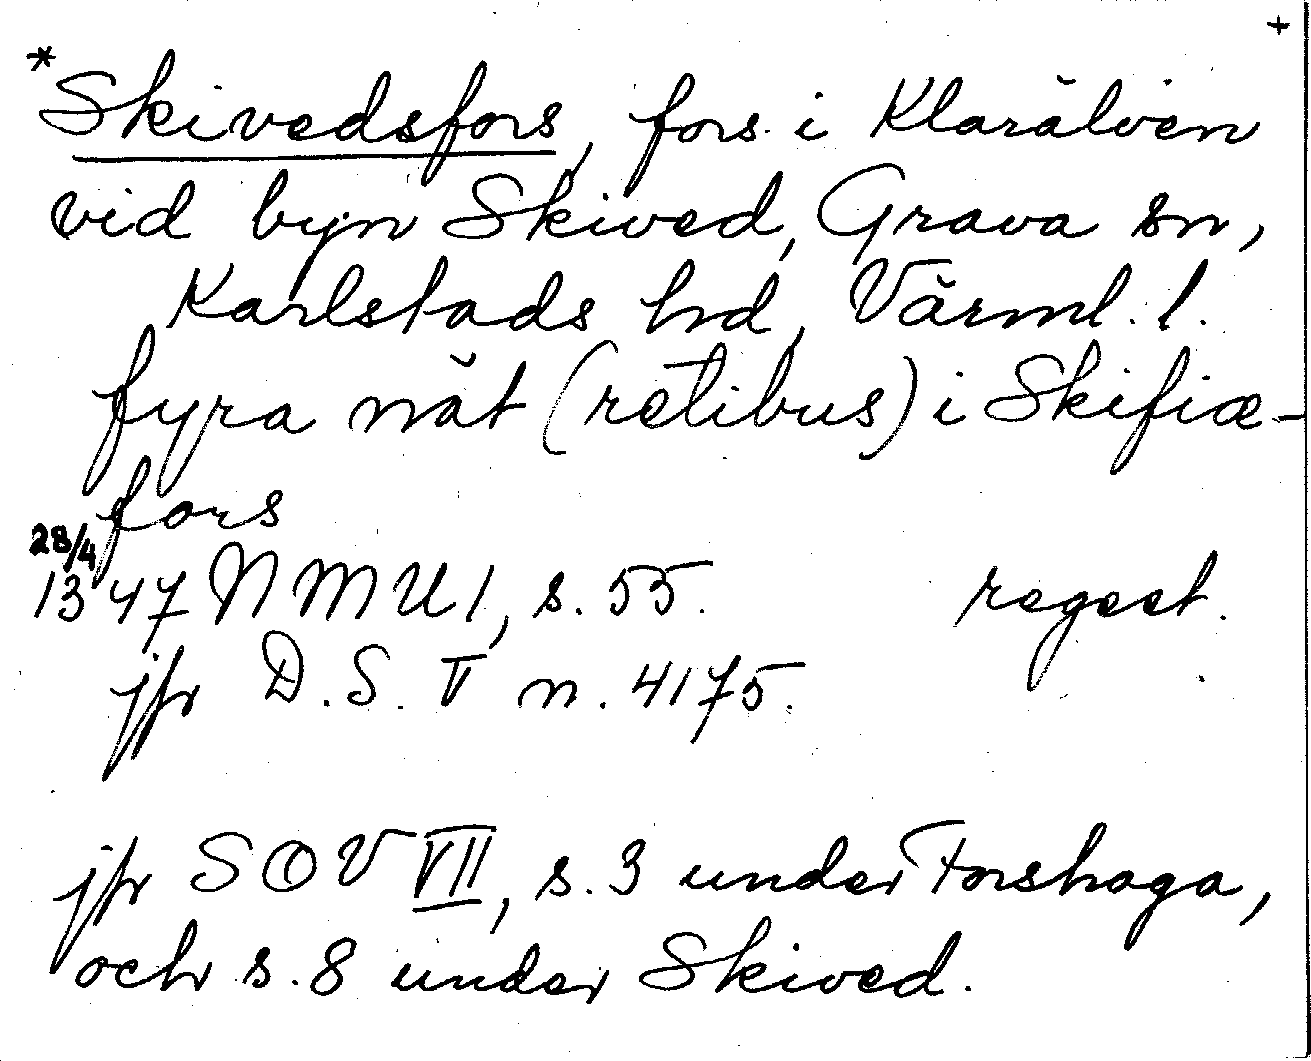 +
*Skivedsfors, fors i Klarälven
vid byn Skived, Grava sn,
Karlstads hd, Värml. l.
fyra nät (retibus) i Skifiæ-
fors
28/4
1347 NMU 1, s. 55. regest.
jfr D.S. V n. 4175.
jfr SOV VII, s. 3 under Forshaga,
och s. 8 under Skived.